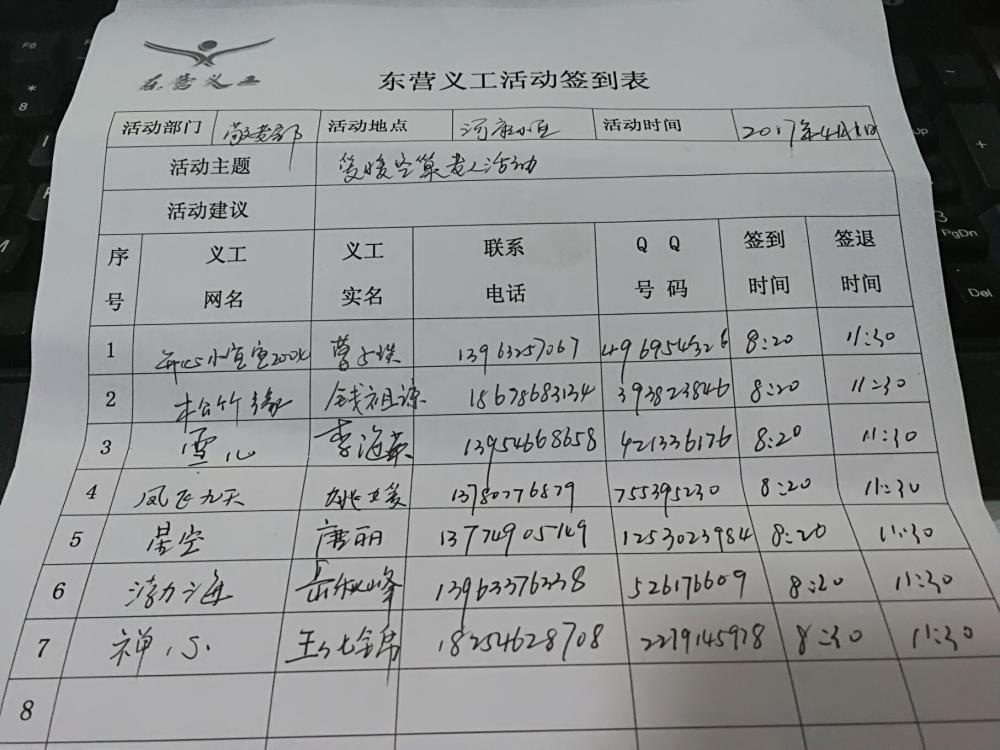 东营义工
东营义工活动签到表
活动部门 敬老部 活动地点 活动时间 2017年4月
活动主题 空巢老人活动
活动建议
序号 义工网名 义工实名 联系电话 QQ号码 签到时间 签退时间
1 13963257067 496954326 8:20 11:30
2 松竹缘 钱祖源 18678683134 393823846 8:20 11:30
3 雪儿 李海英 13954668658 421336176 8:20 11:30
4 凤飞九天 13780776879 755395230 8:20 11:30
5 星空 唐丽 13774905149 1253023984 8:20 11:30
6 海 岳秋峰 13963376338 526176609 8:20 11:30
7 禅 王 锦 18254628708 2279145978 8:30 11:30
8
PgDn
Del